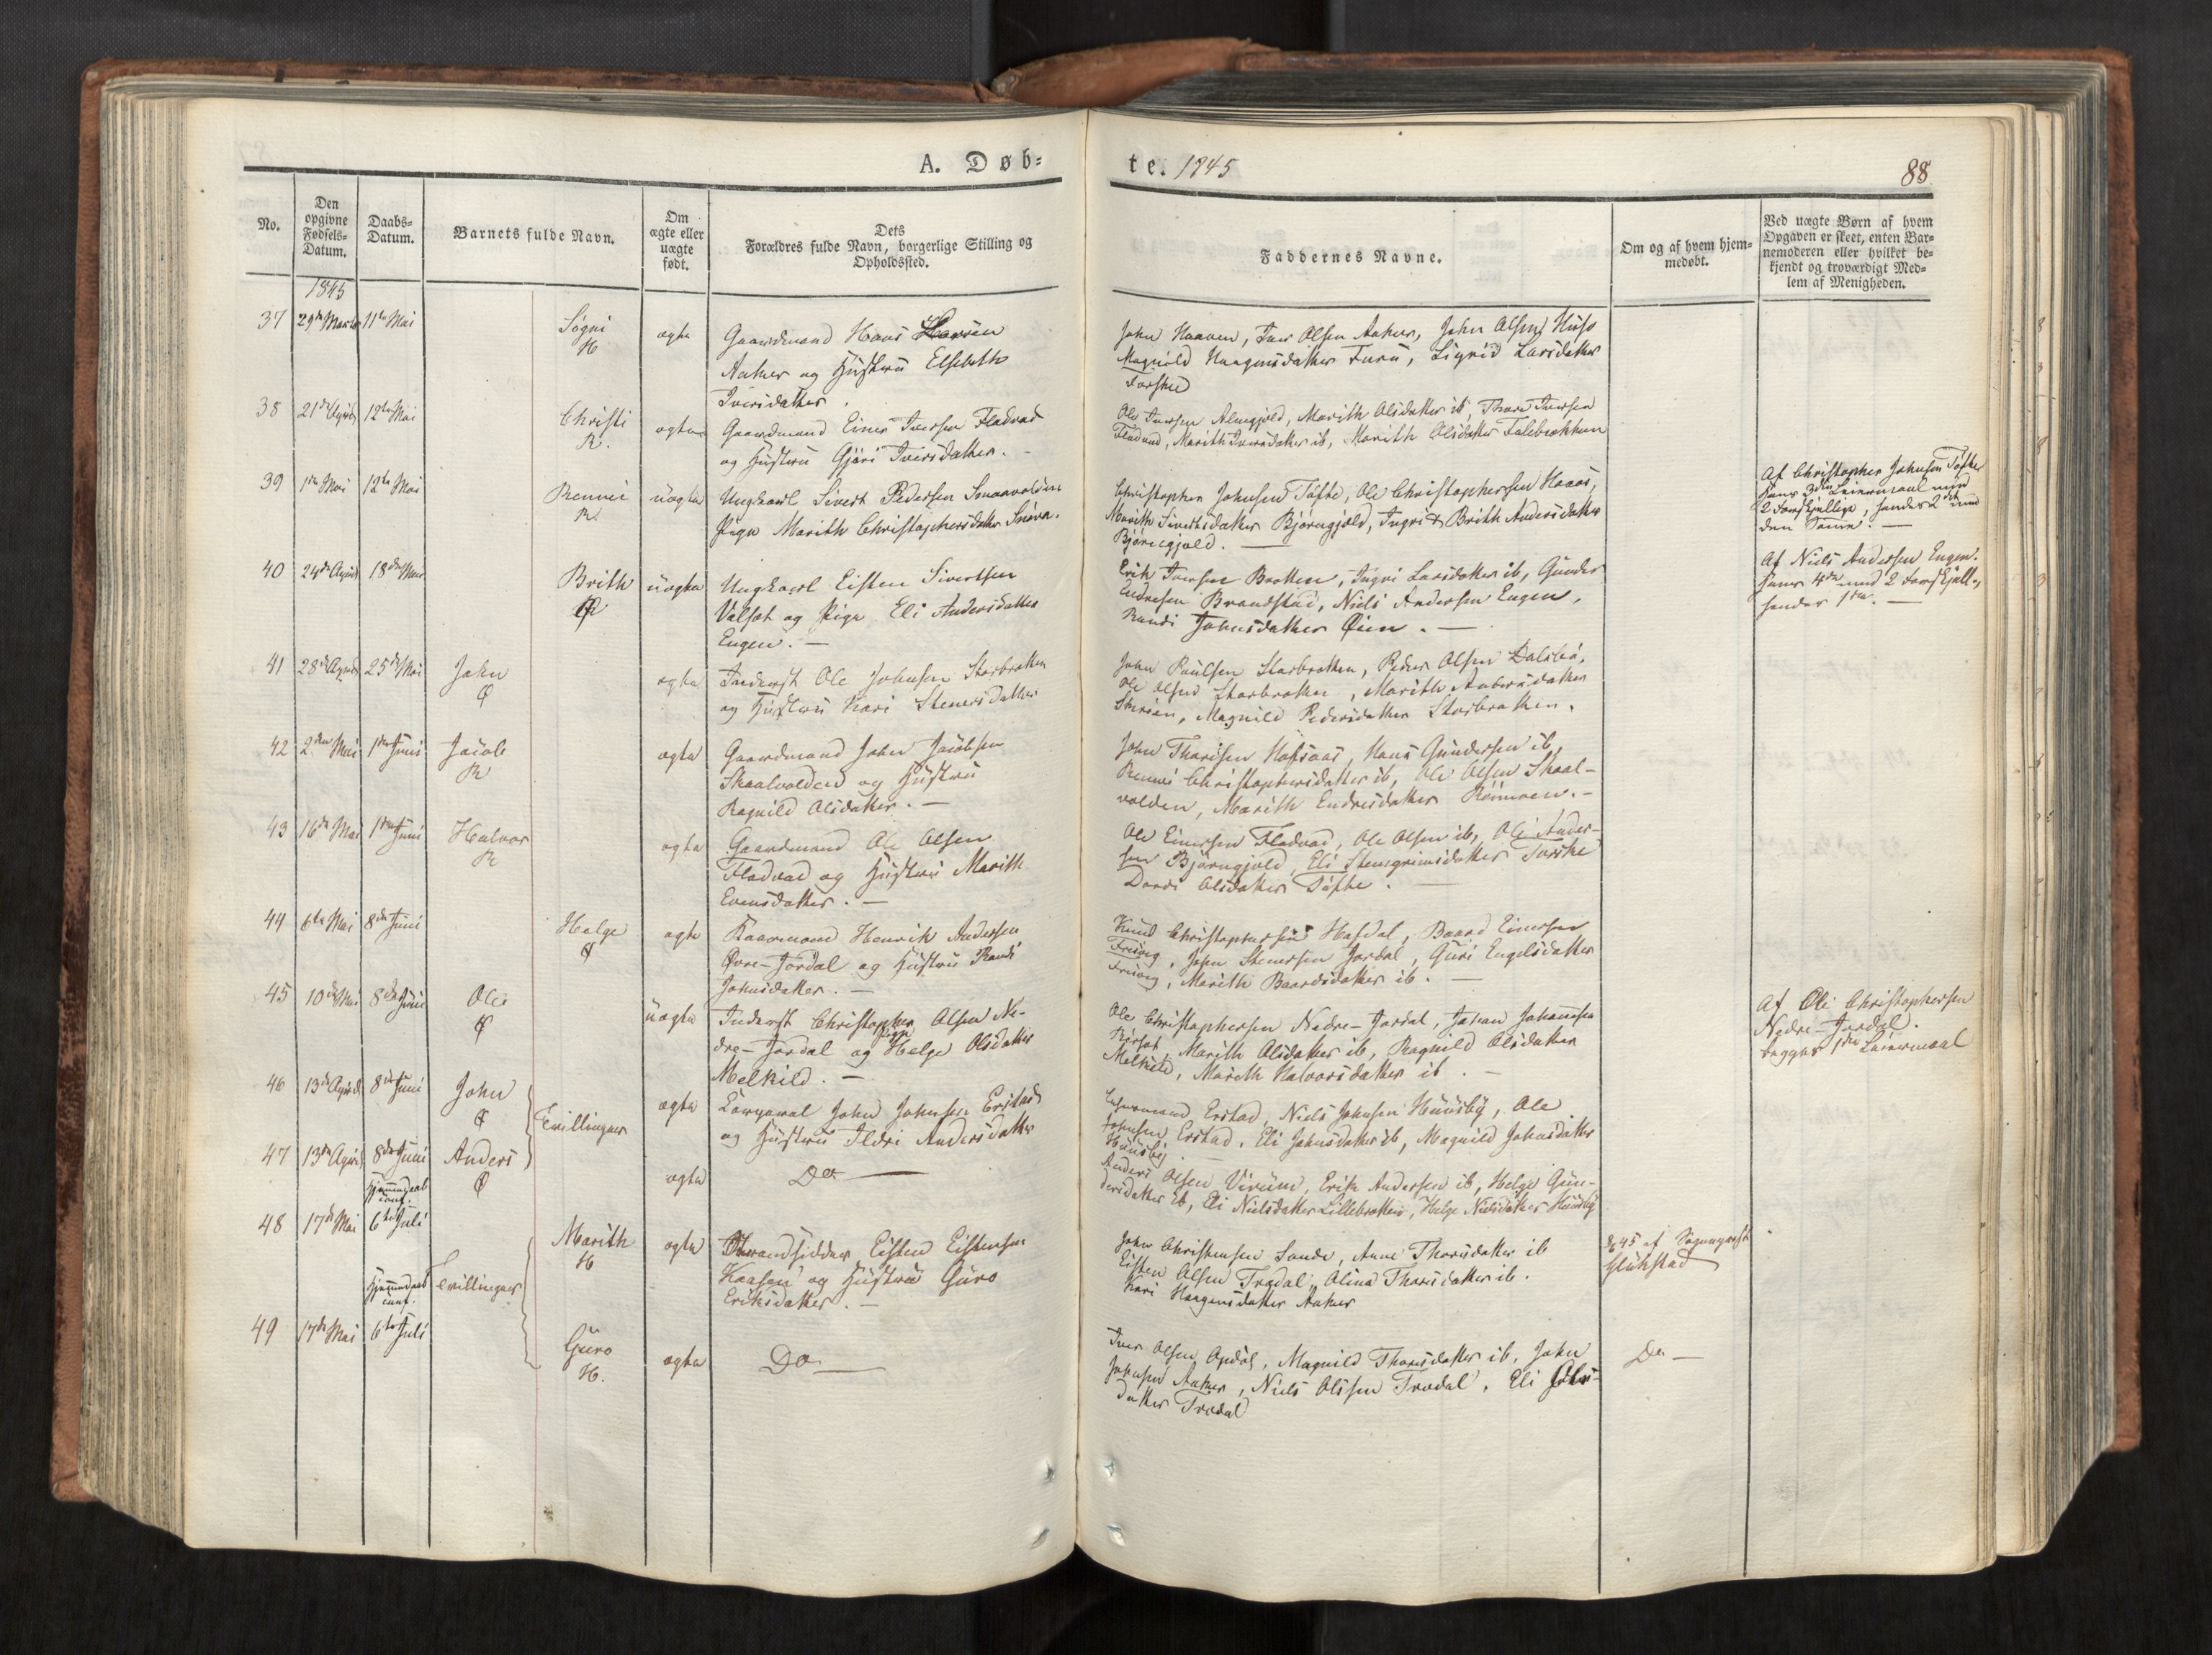 A. Døb=
te. 1845
88
No.
Den opgivne Fødsels= Datum.
Daabs= Datum.
Barnets fulde Navn.
Om ægte eller uægte født.
Dets Forældres fulde Navn, borgerlige Stilling og Opholdssted.
Faddernes Navne.
Om og af hvem hjem= medøbt.
Ved uægte Børn af hvem Opgaven er skeet, enten Bar= nemoderen eller hvilket be= kjendt og troværdigt Med= lem af Menigheden.
1845
37 29de Marts 11te Mai
Sigri
H
ægte
Gaardmand Hans
Aaker og Hustru Elsebeth
Iversdatter.
John Haaven, Iver Olsen Aaker, John Olsen Huso
Magnild Haagensdatter Furu, Sigrid Larsdatter
Forshed
38 21de April 12te Mai
Christi
R.
ægte
Gaardmand Einer Iversen Fladvad
og Hustru Gjøri Iversdatter.
Ole Iversen Almgjeld, Marith Olsdatter ib, Thore Iversen
Fladvad, Marith Iversdatter ib, Marith Olsdatter Falebrækken
39 1ste Mai 12te Mai
Rennei
R.
uægte
Ungkarl Sivert Pedersen Smaavolden
Pige Marith Christophersdatter Snøva.
Christopher Johnsen Tøfte, Ole Christophersen Haaas,
Marith Sivertsdatter Bjørngjeld, Ingri & Brith Andersdatter
Bjørngjeld. —
Af Christopher Johnsen Tøfte
hans 3die Leiermaal med
2 forskjellige, hendes 2det med
den Samme. —
40 24de April 18de Mai
Brith
Ø
uægte
Ungkarl Eisten Sivertsen
Valsæt og Pige Eli Andersdatter
Engen. —
Erik Iversen Brøtten, Ingri Larsdatter ib, Gunder
Endresen Brandstad, Niels Andersen Engen,
Randi Johnsdatter Øien. —
Af Niels Andersen Engen.
hans 4de med 2 forskjell.,
hendes 1ste. —
41 28de April 25de Mai
John
Ø
ægte
Inderst Ole Johnsen Storbrøtten
og Hustru Kari Stenersdatter
John Paulsen Storbrøtten, Peder Olsen Dalsbø,
Ole Olsen Storbrøtten, Marith Andersdatter
Magnild Pedersdatter Storbrøtten.
42 2den Mai 1ste Juni
Jacob
R
ægte
Gaardmand John Jacobsen
Skaalvolden og Hustru
Ragnild Olsdatter. —
John Thoresen Hafsaas, Hans Gundersen ib,
Rennei Christophersdatter ib, Ole Olsen Skaal-
volden, Marith Endresdatter Rønmoen. —
43 16de Mai 1ste Juni
Halvor
R
ægte
Gaardmand Ole Olsen
Fladvad og Hustru Marith
Evensdatter. —
Ole Einersen Fladvad, Ole Olsen ib, Ole Ander-
sen Bjørngjeld, Eli Stengrimsdatter Torske
Dordi Olsdatter Tøfte. —
44 6te Mai 8de Juni
Helge
Ø
ægte
Kaarmand Henrik Andersen
Øvre-Jordal og Hustru Randi
Johnsdatter. —
Knud Christophersen Hafdal, Baard Einersen
Friisvig, John Stenersen Jordal, Guri Engelsdatter
Friisvig, Marith Baardsdatter ib. —
45 10de Mai 8de Juni
Ole
Ø
uægte
Inderst Christopher Olsen Ne-
dre-Jordal og Pige Helge Olsdatter
Melkild. —
Ole Christophersen Nedre-Jordal, Johan Johannesen
Marith Olsdatter ib, Ragnild Olsdatter
Melkild, Marith Halvorsdatter ib. —
Af Ole Christophersen
Nedre-Jordal.
begges 1ste Leiermaal
46 13de April 8de Juni
John
Ø
Tvillinger
ægte
John Johnsen Erstad
og Hustru Ildri Andersdatter
Erstad, Niels Johnsen Huusby, Ole
Johnsen Erstad, Eli Johnsdatter ib, Magnild Johnsdatter
Huusby
47 13de April 8de Juni
Anders
Ø
ægte
Do —
Anders Olsen Virum, Erik Andersen ib, Helge Gun-
dersdatter ib, Eli Nielsdatter Lillebrøtten, Helge Nielsdatter Huusby
Hjemmedaab conf.
48 17de Mai 6te Juli
Marith
H
ægte
Strandsidder Eisten Eistensen
Kaasen og Hustru Guro
Eriksdatter. —
John Christensen Sande, Anne Thoresdatter ib
Eisten Olsen Trædal, Olina Thoresdatter ib.
Kari Haagensdatter Aaker
45 af Sognepræst
Glükstad
Tvillinger
Hjemmedaab conf.
49 17de Mai 6te Juli
Guro
H.
ægte
Do —
Iver Olsen Opdøl, Magnild Thoresdatter ib, John
Johnsen Aaker, Niels Olssen Trædal, Eli Ols-
datter Trædal
Do —